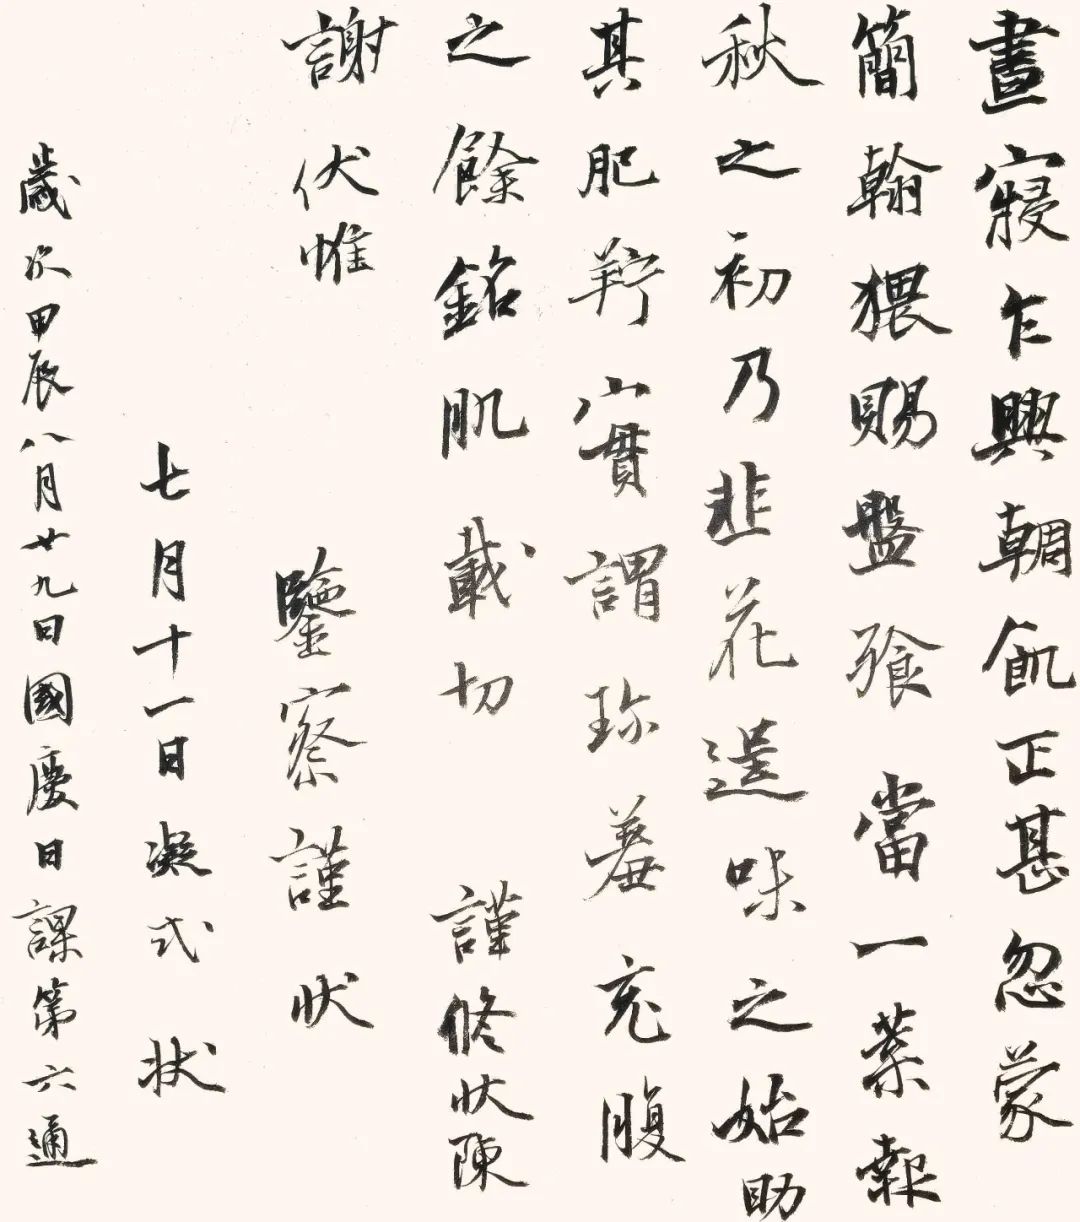 晝寢乍興輖飢正甚忽蒙
簡翰猥賜盤飧當一葉報
秋之初乃韭花逞味之始助
其肥羜實謂珍羞充腹
之餘銘肌載切謹修狀陳
謝伏惟鑒察謹狀
七月十一日凝式狀
歲次甲辰八月廿九日國慶日課第六通